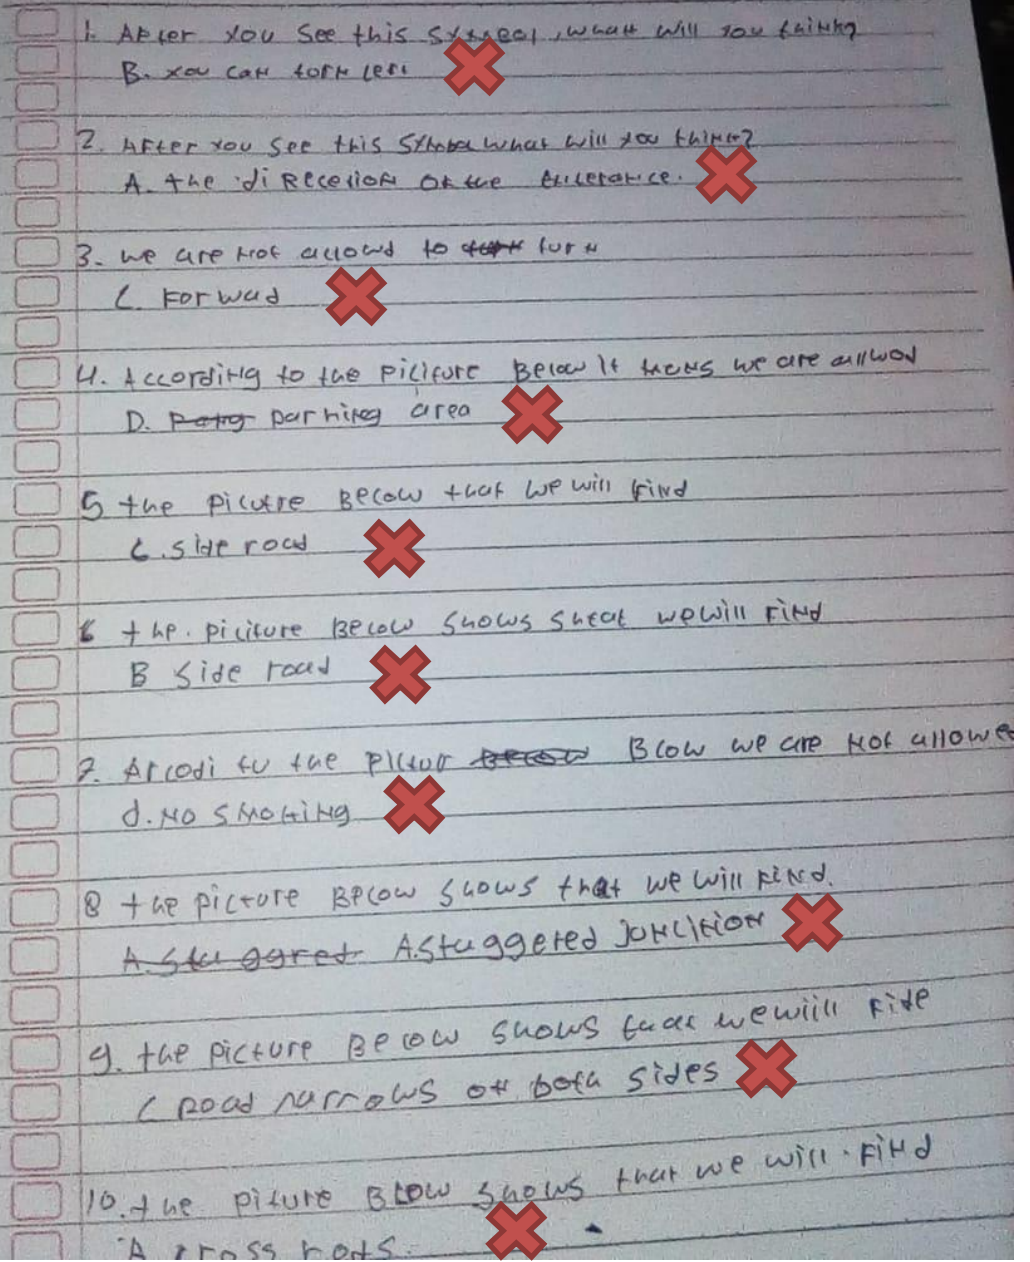 1. After you See this ,what will you think?
B. you can torn left
2. After you See this Symbol what will you think?
A. the direcetion of the enterance.
3. we are Not allowd to turn
C. Forwad
4. According to the piciture Below It means we are allwod
D. parking area
5 the picutre Below that we will find
C. side road
6 the. piciture Below shows we will Find
B Side road
7. Arcodi to the Blow we are Not allowed
d. No Smoking
8 the picture Below shows that we will find.
A. Staggered junction
9. the picture Below shows that we wiill
C Road narrows on both sides
10. the piture Blow shows that we will. Find
A cross rods.